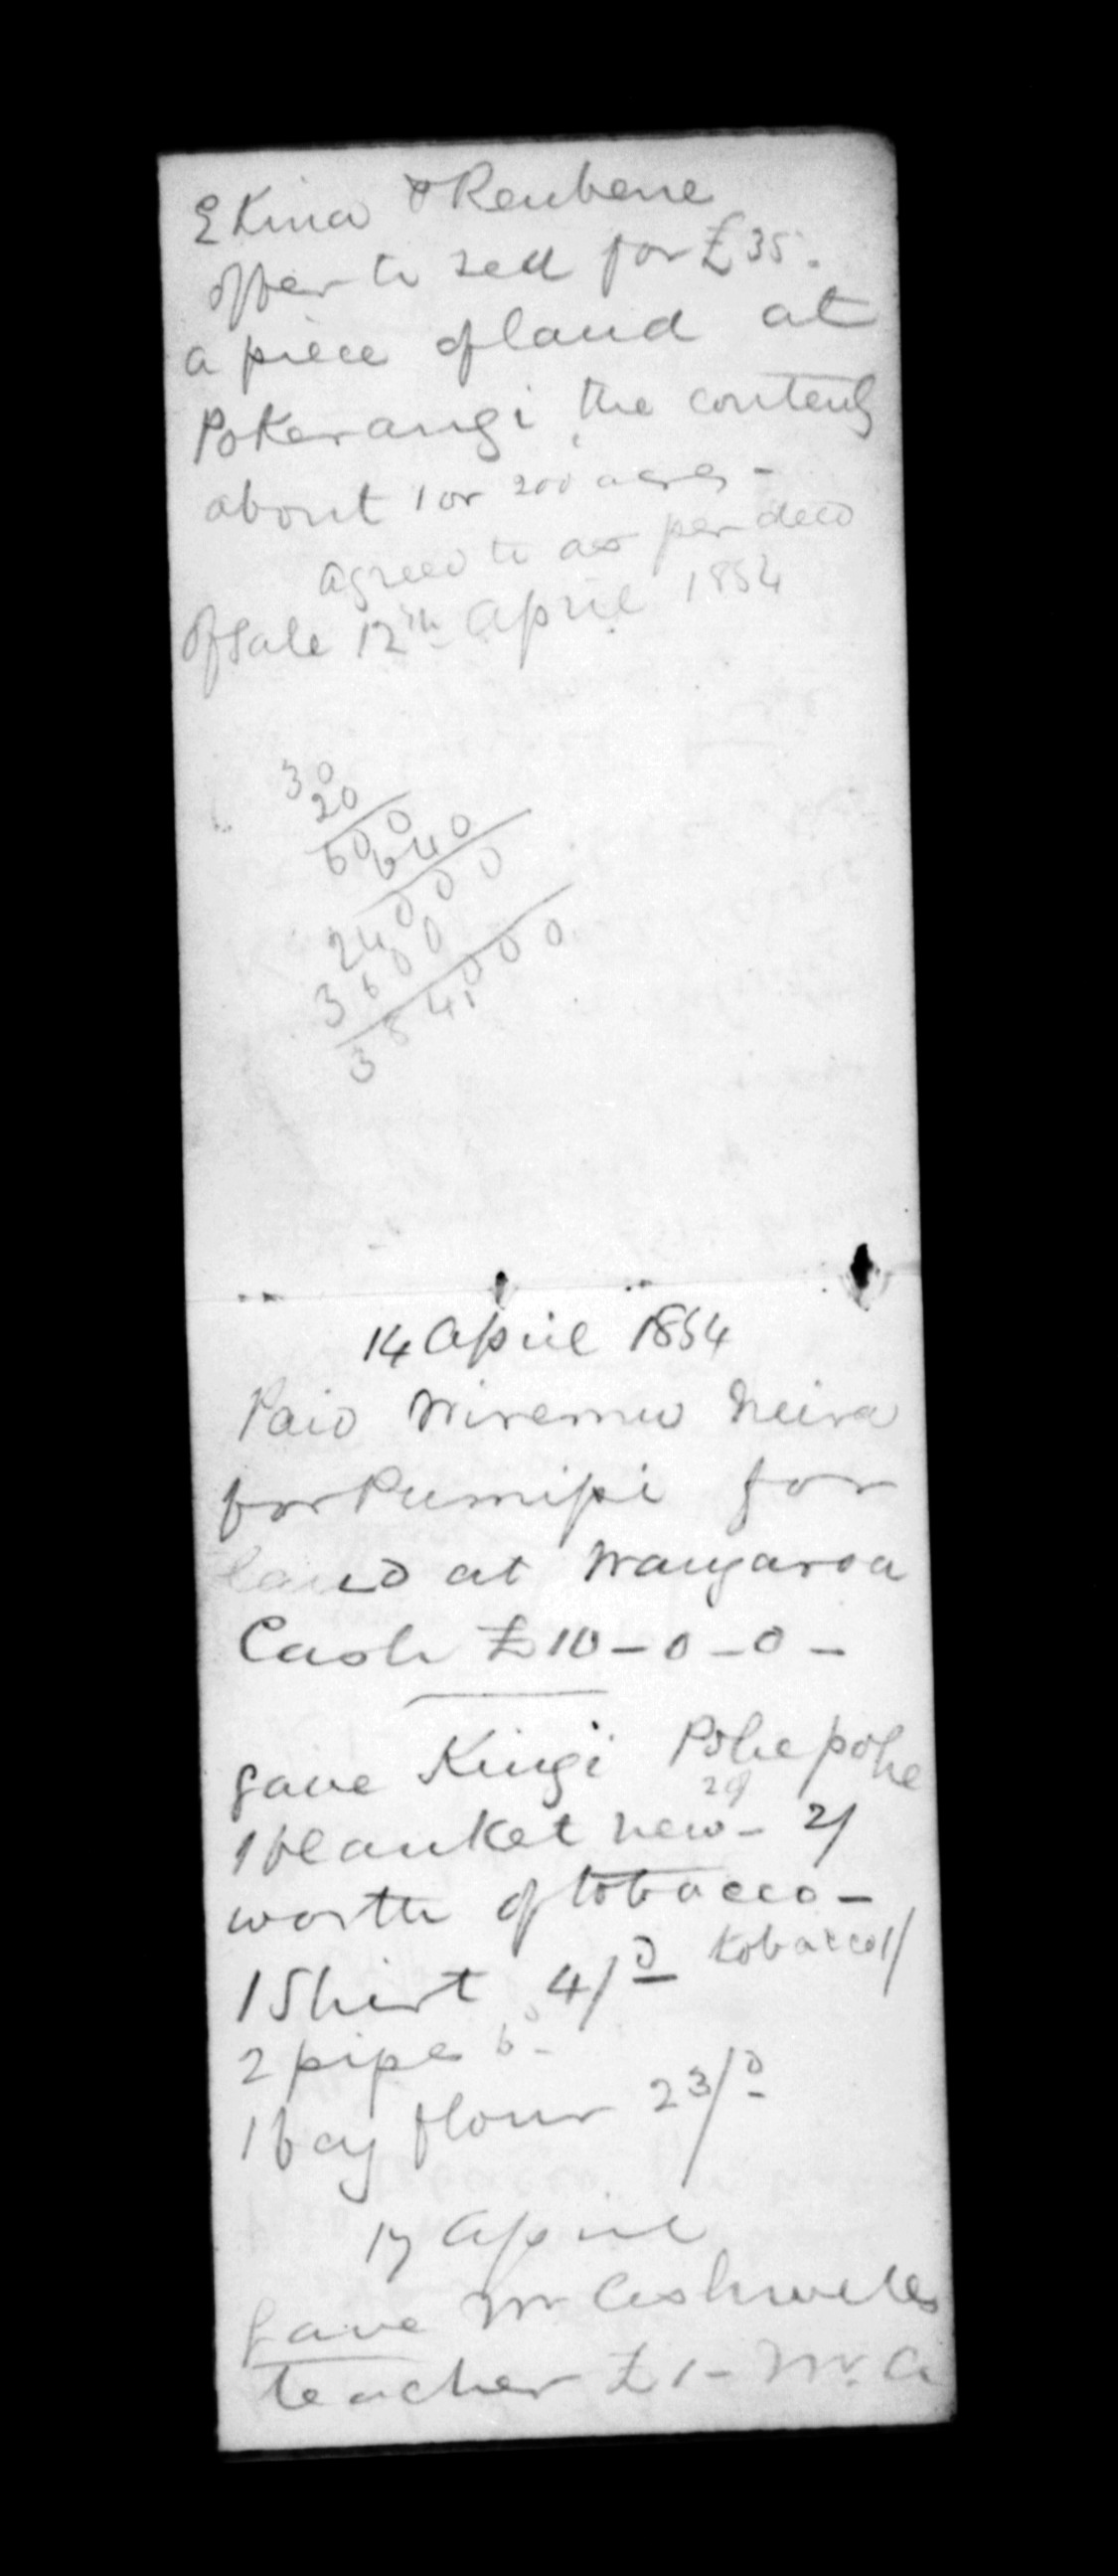 E Kina & Reubene
offer to sell for £35.
a piece of land at
Pokerangi the contents
about 1 or 200 acres -
agreed to as per deed
of sale 12th April 1854
30
20
600
640
24000
3600
384,000
14 April 1854
Paid Wiremu Neira
for Pumipi for
land at Wangaroa
Cash £10-0-0-
gave Kingi Pohepohe
1 blanket new - 2/
worth of tobacco -
1 Shirt 4/0 tobacco 1/
2 pipes 6d -
1 bag flour 23/0
17 April
gave Mr Ashwells
teacher £1 - Mr. A